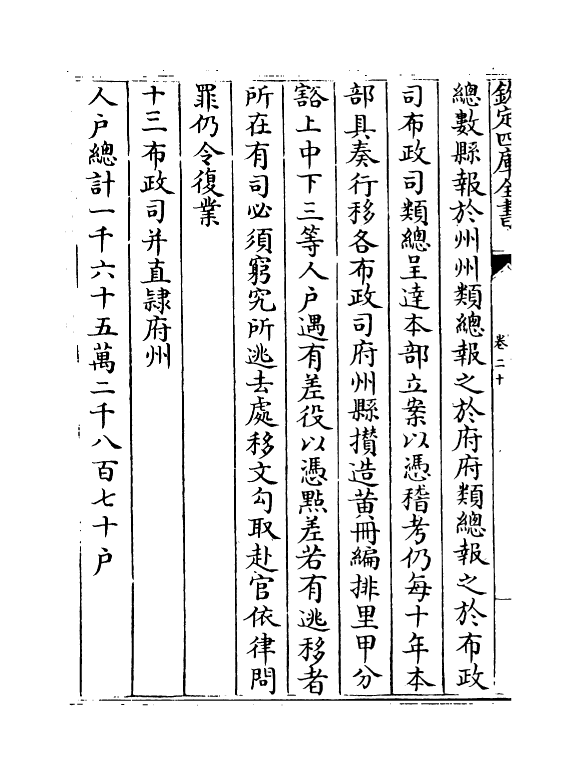 欽定四庫全書
卷二十
總數縣報於州州類總報之於府府類總報之於布政
司布政司類總呈達本部立案以憑稽考仍每十年本
部具奏行移各布政司府州縣攅造黄冊編排里甲分
豁上中下三等人户遇有差役以憑㸃差若有逃移者
所在有司必須窮究所逃去處移文勾取赴官依律問
罪仍令復業
十三布政司并直隸府州
人户總計一千六十五萬二千八百七十户